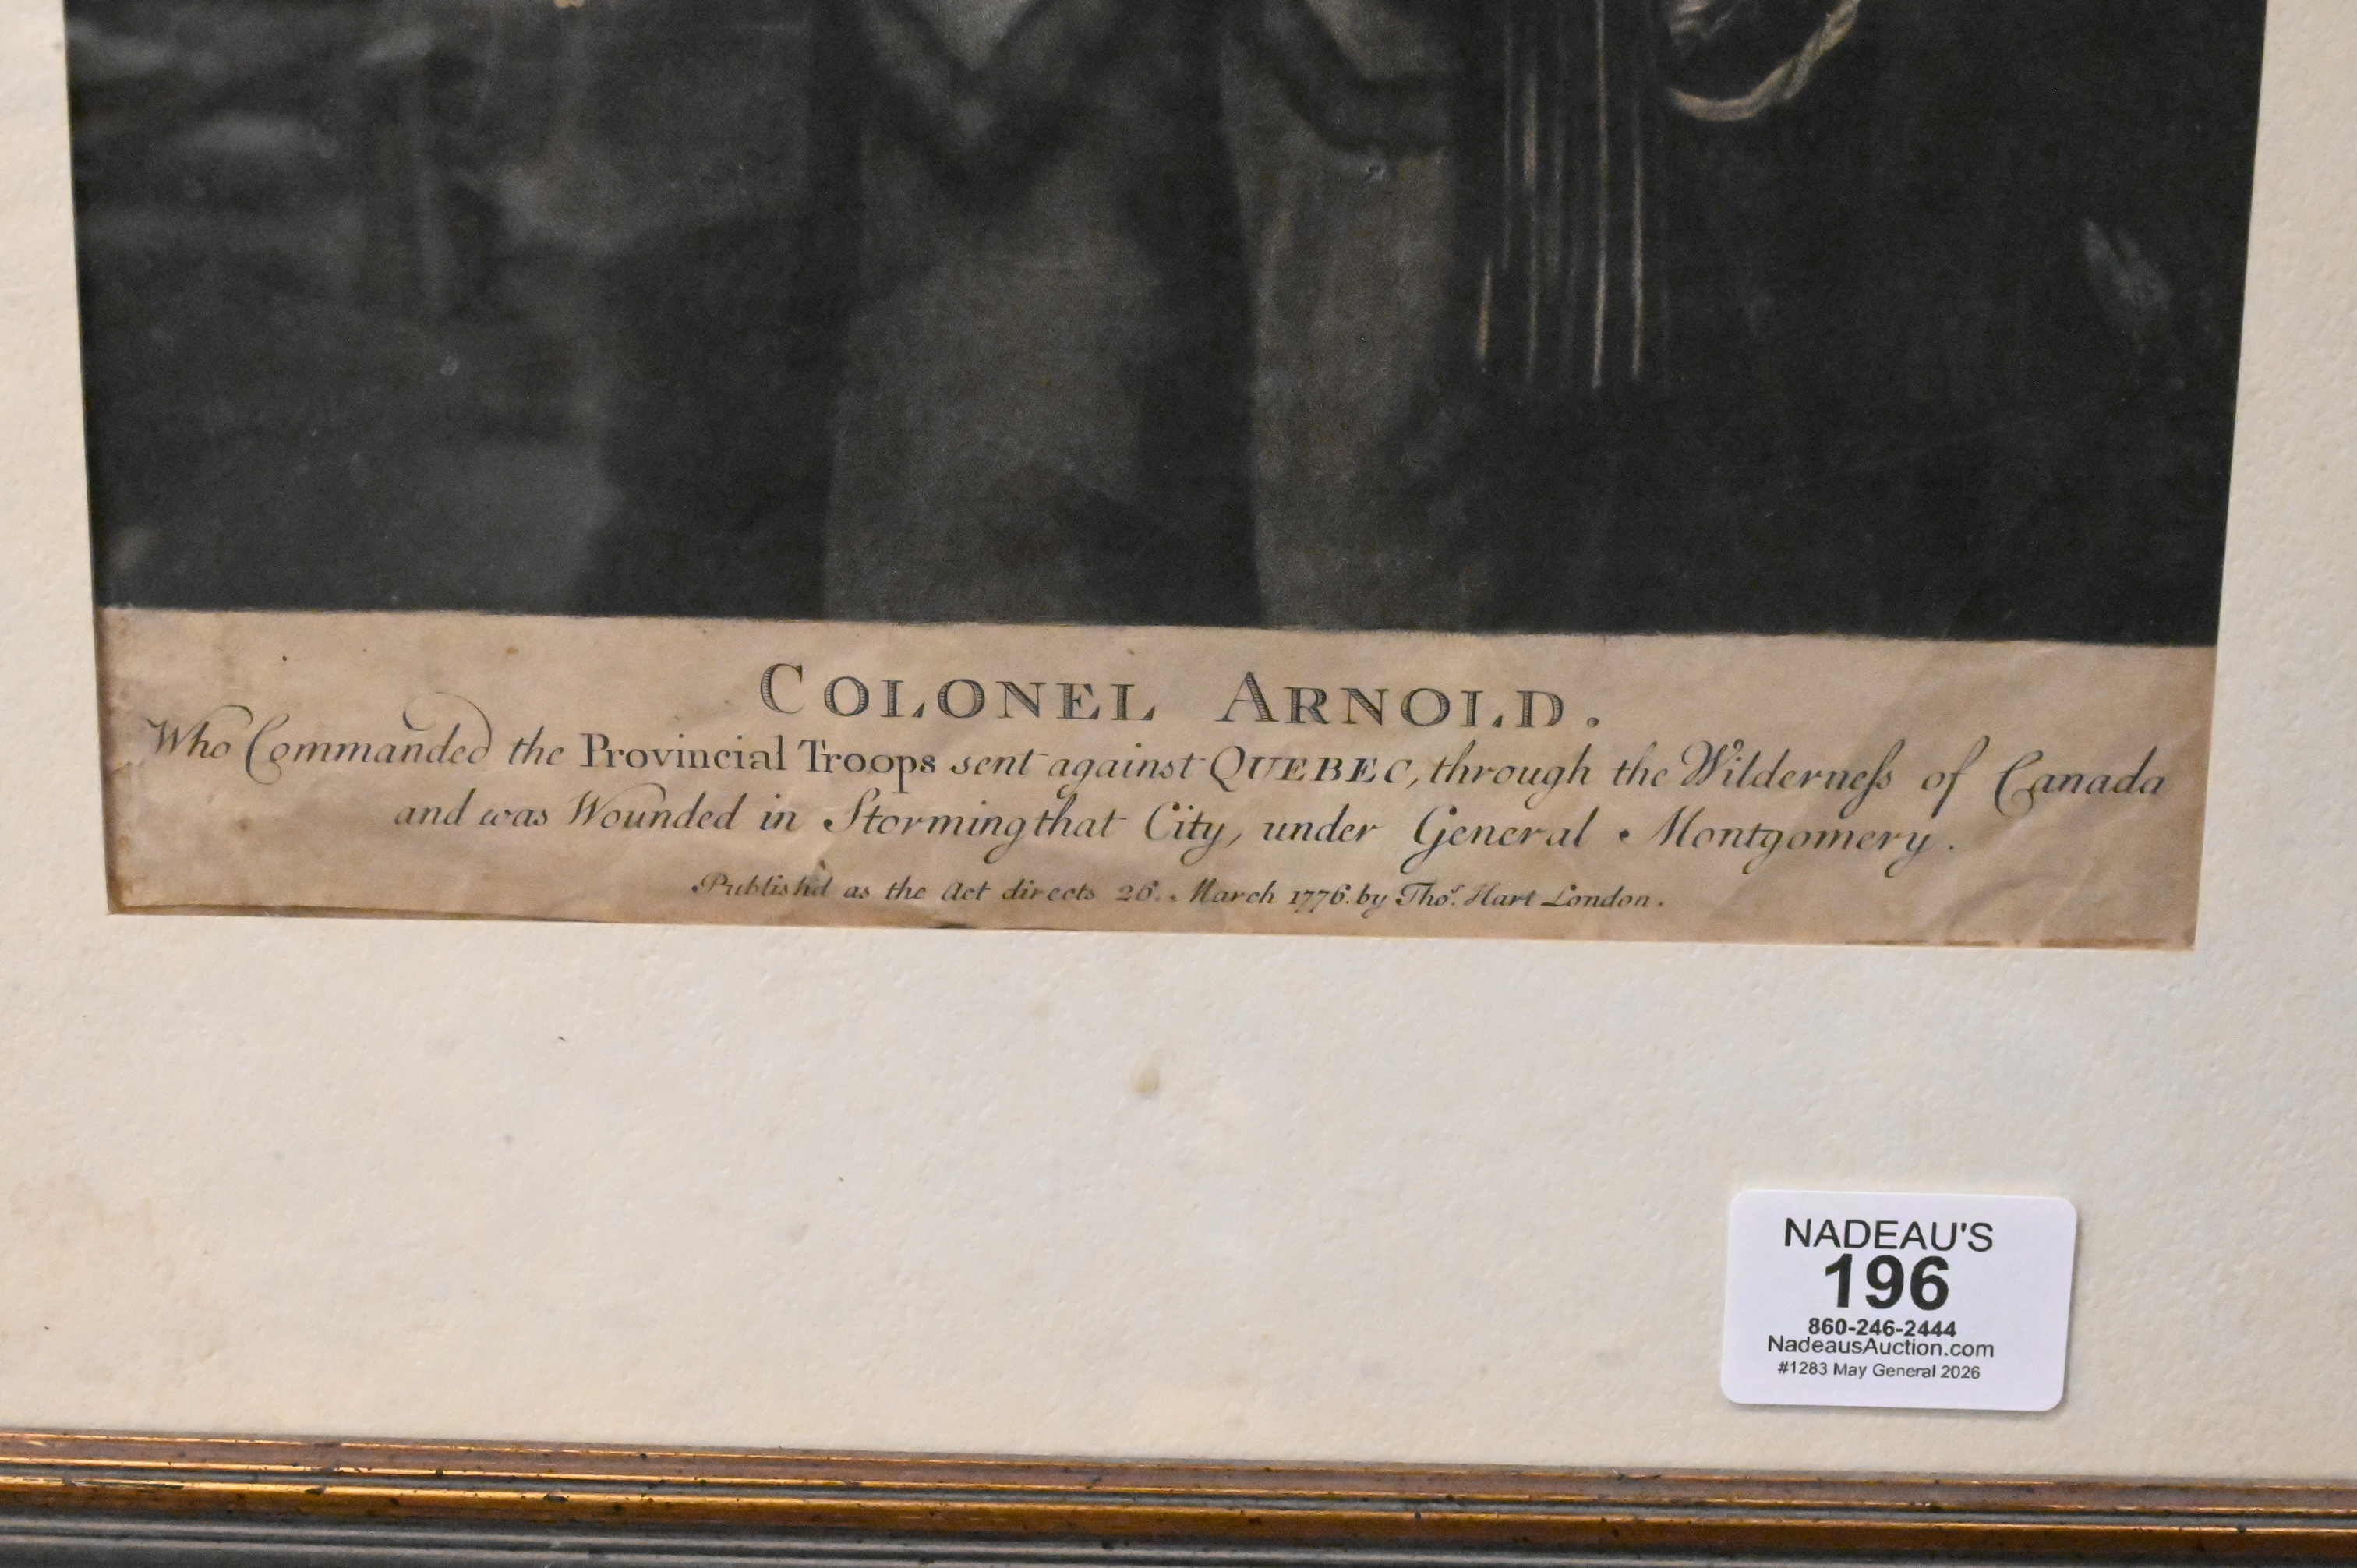 COLONEL ARNOLD.
Who Commanded the Provincial Troops sent against QUEBEC, through the Wilderneſs of Canada
and was Wounded in Storming that City, under General Montgomery.
Publish'd as the Act directs 26. March 1776. by Thos. Hart London.
NADEAU'S
196
860-246-2444
NadeausAuction.com
#1283 May General 2026